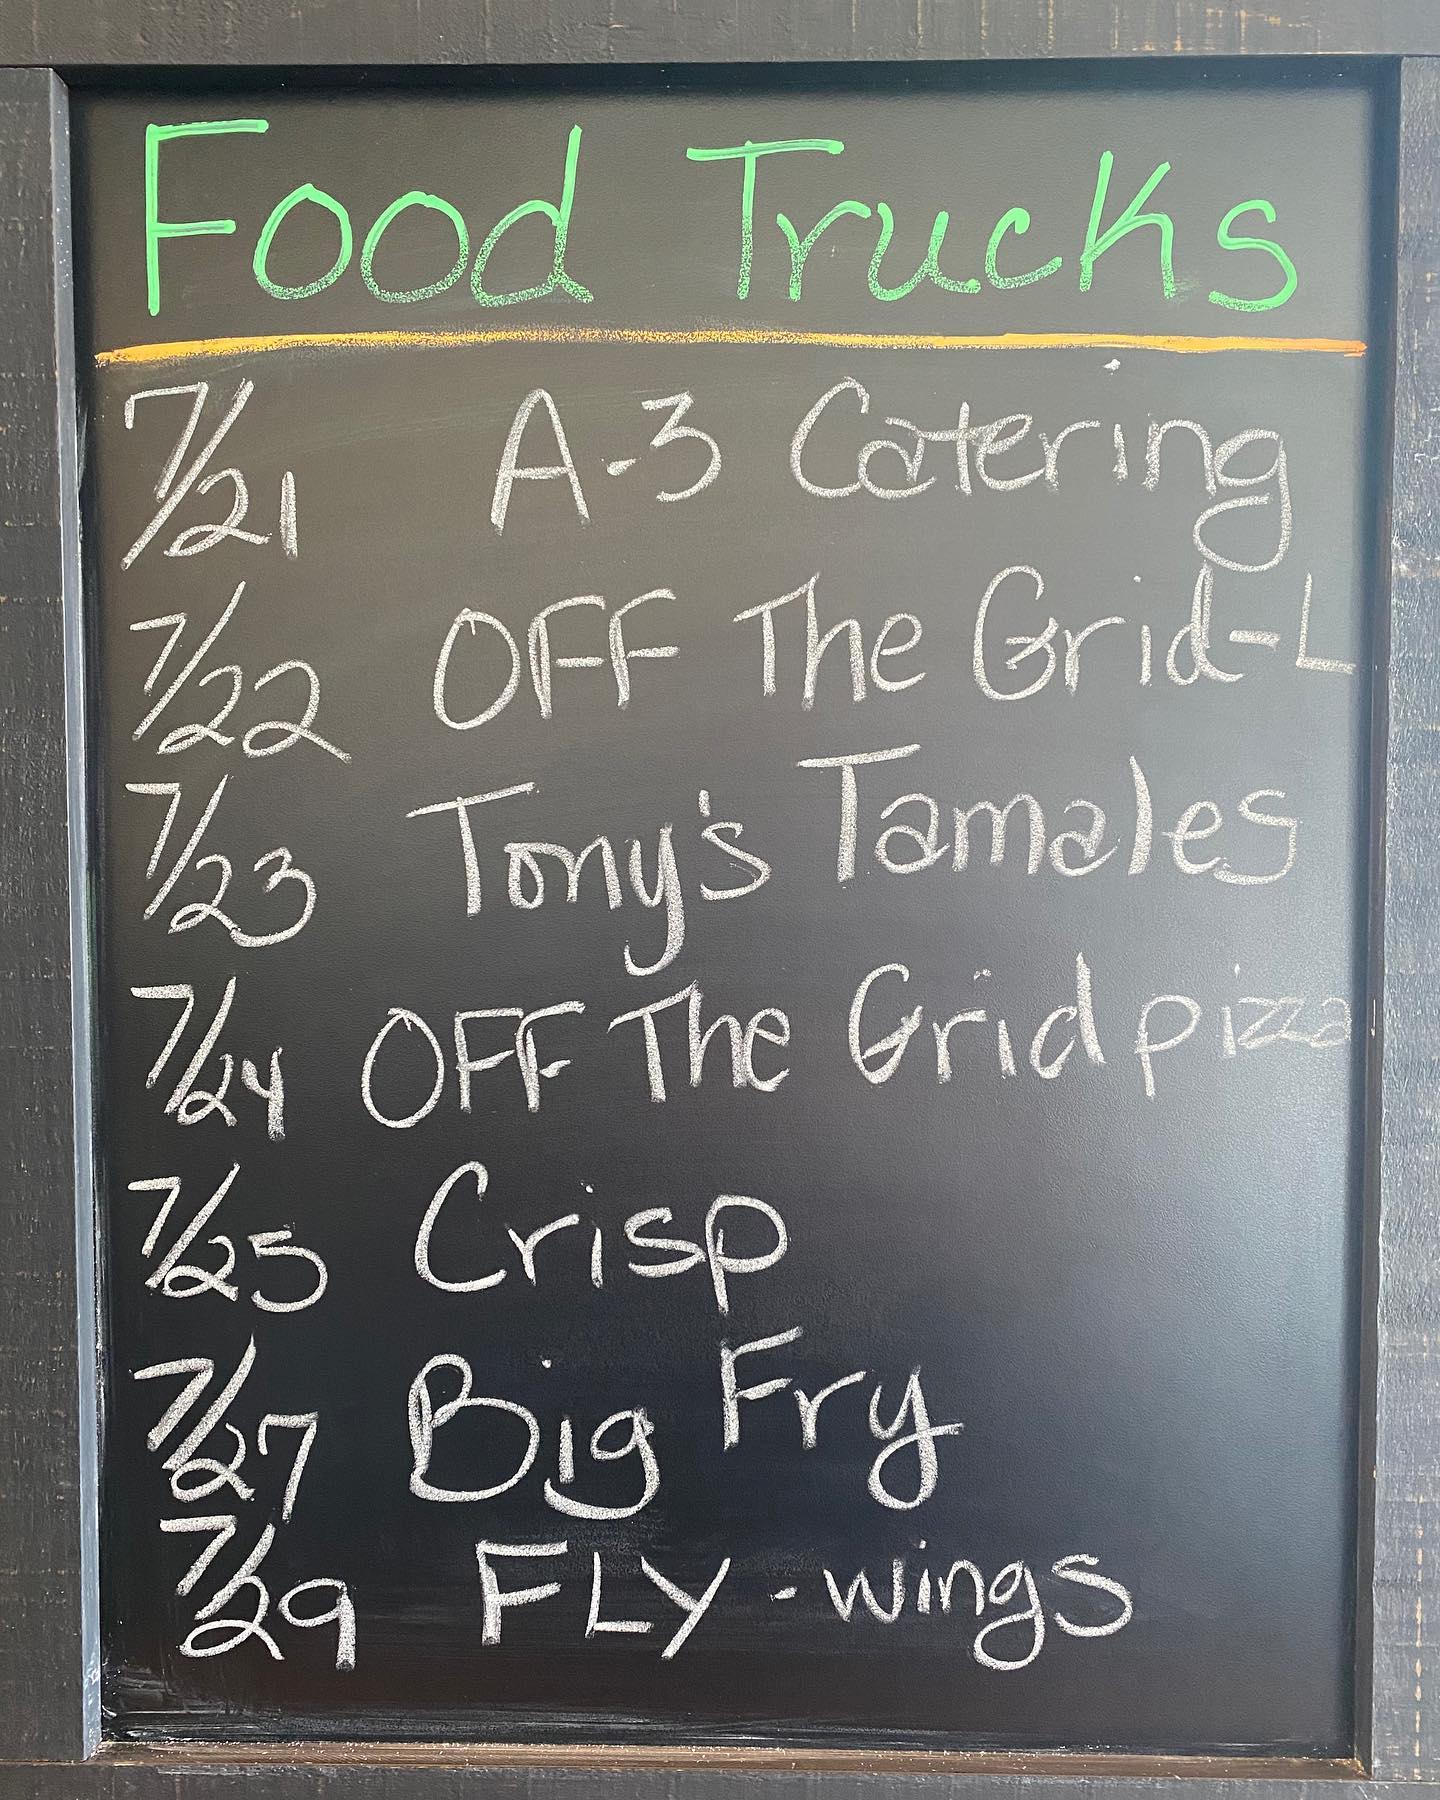 Food Trucks
7/21 A-3 Catering
7/22 OFF The Grid-L
7/23 Tony's Tamales
7/24 OFF The Grid pizza
7/25 Crisp
7/27 Big Fry
7/29 FLY-wings